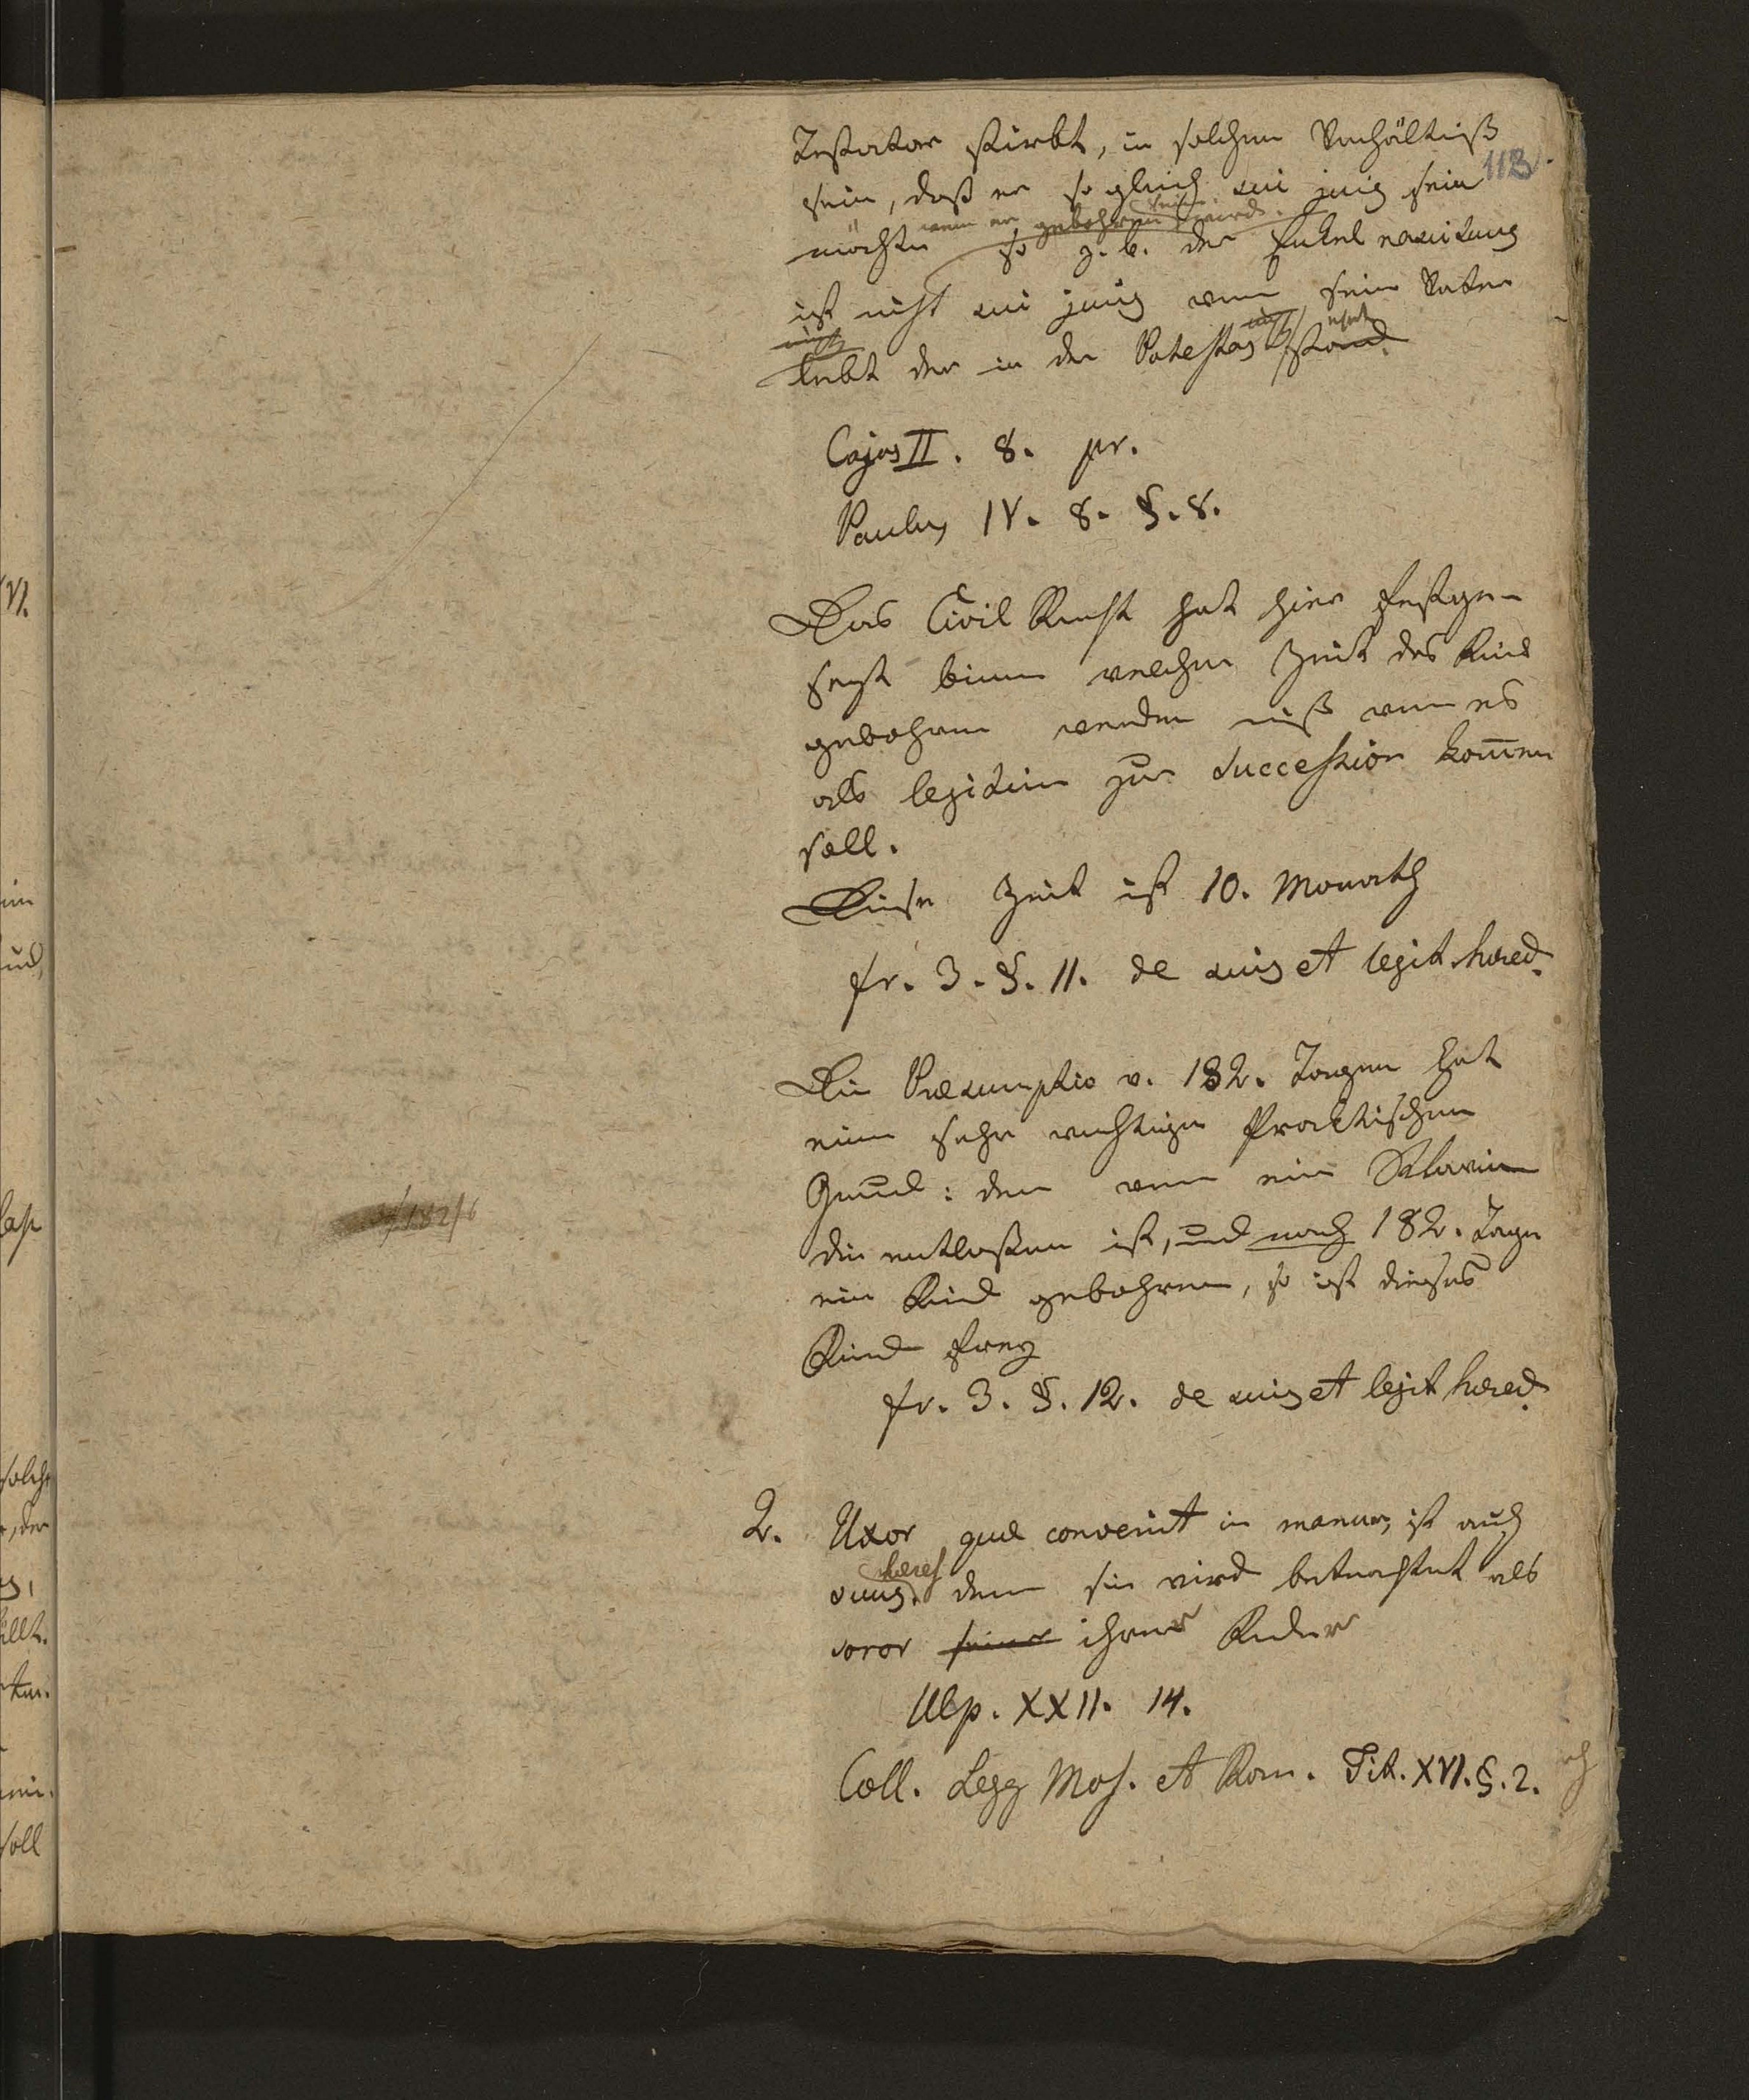 113.
Testator stirbt, in solchem Verhältniß
sein, daß er so gleich sui juris sein
wenn er gebohren wird.
möchte so z. b. der Enkel nasciturus
ist nicht sui juris wenn sein Vater
nicht
lebt der in der Potestas stand.
Cajus II. 8. pr.
Paulus IV. 8. §. 8.
Das Civil Recht hat hier festge-
sezt binnen welcher Zeit das Kind
gebohren werden muß wenn es
als legitim zur Succession kom̄en
soll.
Diese Zeit ist 10. Monath
fr. 3. §. 11. de suis et legit. hæred.
Die Præsumptio v. 182. Tagen hat
einen sehr wichtigen Practischen
Grund: denn wenn eine Sklavin
die entlaßen ist, und nach 182. Tagen
ein Kind gebohren, so ist dieses
Kind frey
182/6
fr. 3. §. 12. de suis et legit hæred.
2. Uxor quæ convenit in manum, ist auch
hæres
suus. denn sie wird betrachtet als
soror seiner ihrer Kinder
Ulp. XXII. 14.
Coll. Legg Mos. et Rom. Tit. XVI. §. 2.